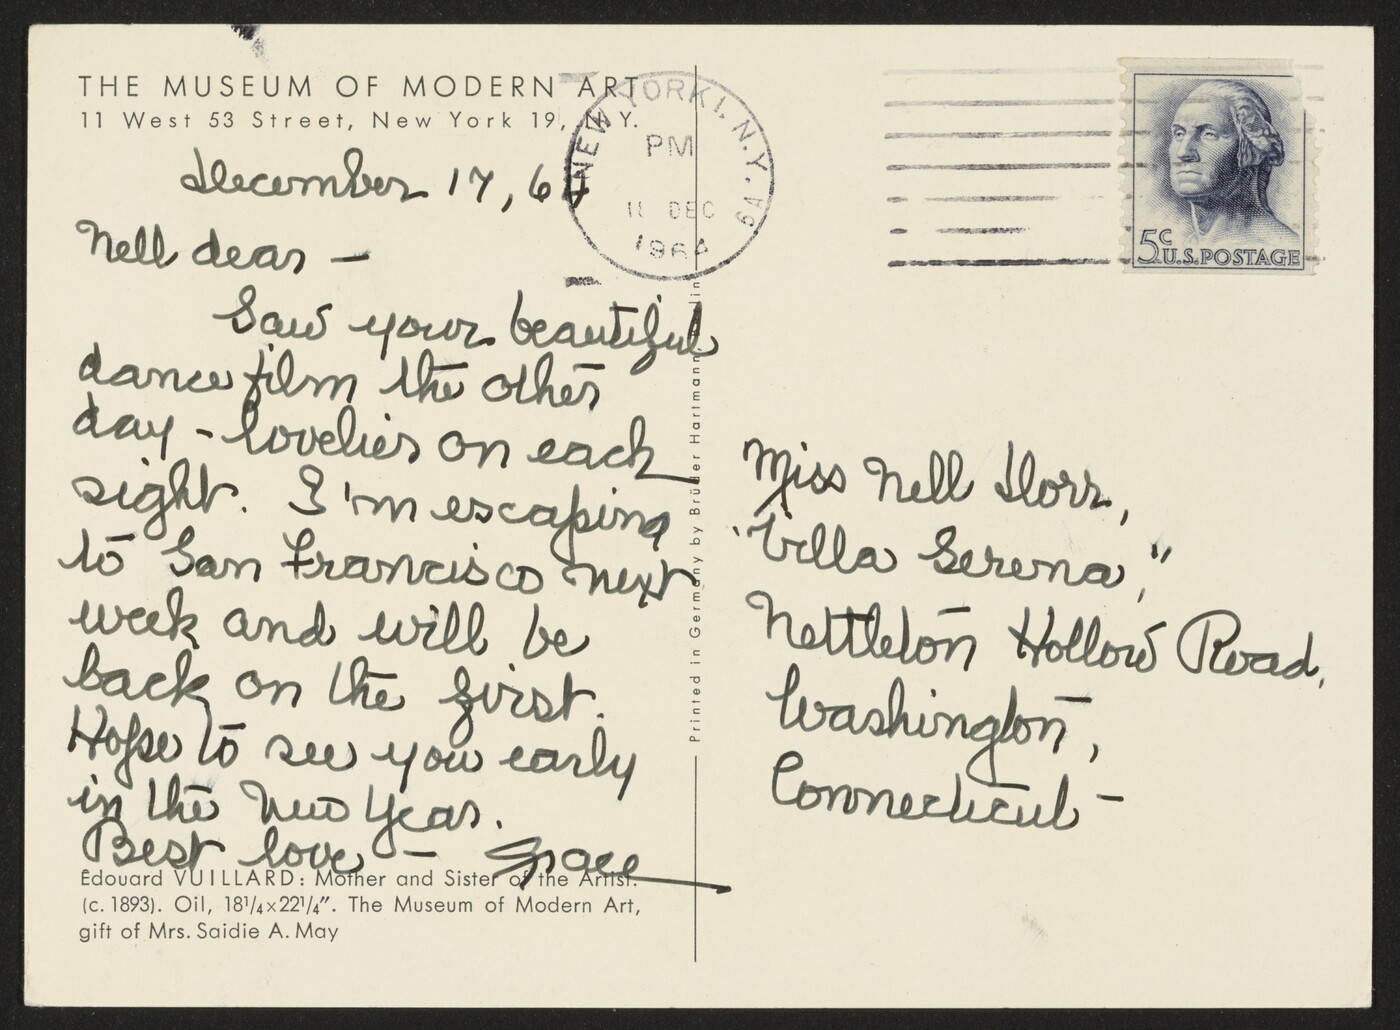 THE MUSEUM OF MODERN ART
11 West 53 Street, New York 19, N.Y.
December 17, 64
Nell dear —
Saw your beautiful
dance film the other
day - lovelier on each
sight. I'm escaping
to San Francisco next
week and will be
back on the first.
Hope to see you early
in the New Year.
Best love — Grace
Edouard VUILLARD: Mother and Sister of the Artist.
(c. 1893). Oil, 18¼×22¼". The Museum of Modern Art,
gift of Mrs. Saidie A. May
Printed in Germany by Brüder Hartmann
NEW YORK 1, N.Y.
PM
DEC
1964
5c U.S. POSTAGE
Miss Nell Dorr,
"Villa Serena,"
Nettleton Hollow Road,
Washington,
Connecticut —